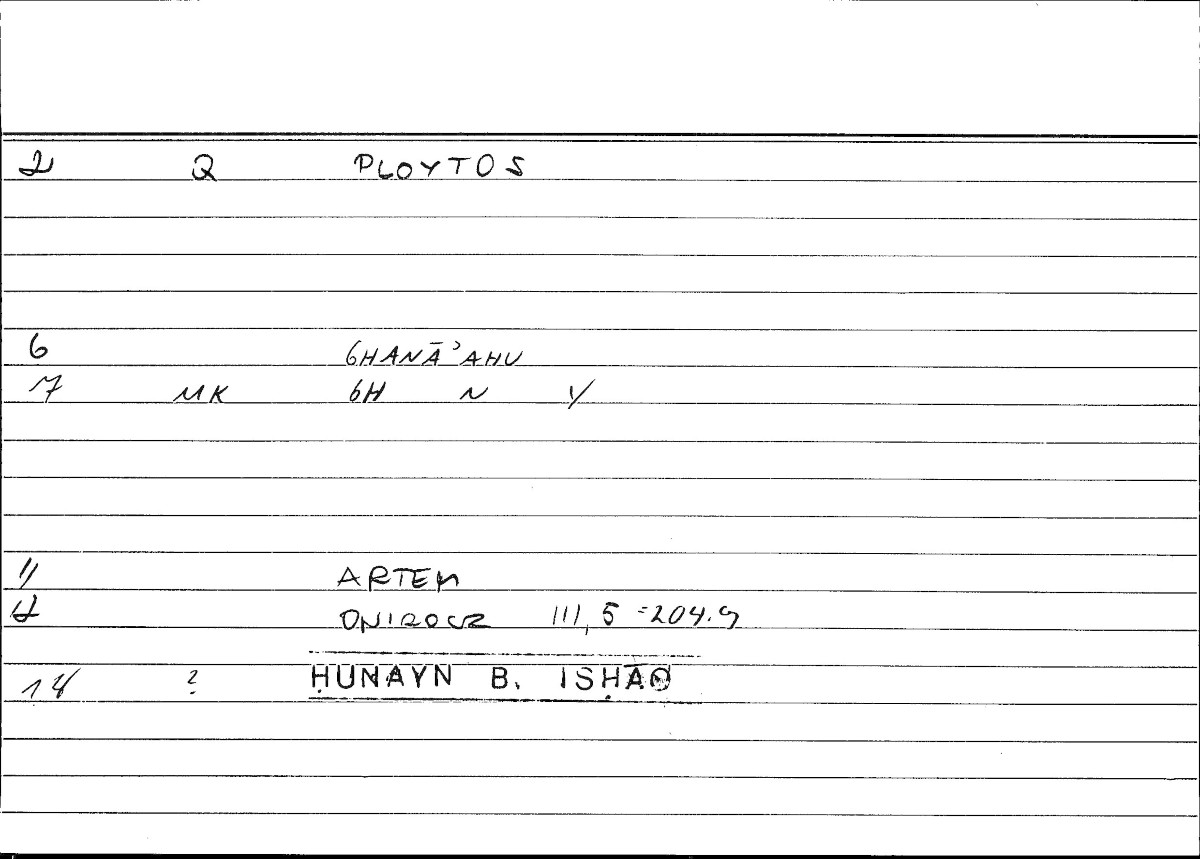 2 Q PLOYTOS
6 GHANĀʾAHU
7 MK GH N Y
11 ARTEM
12 ONIROCR III, 5 =204.9
14 ? ḤUNAYN B. ISḤĀQ